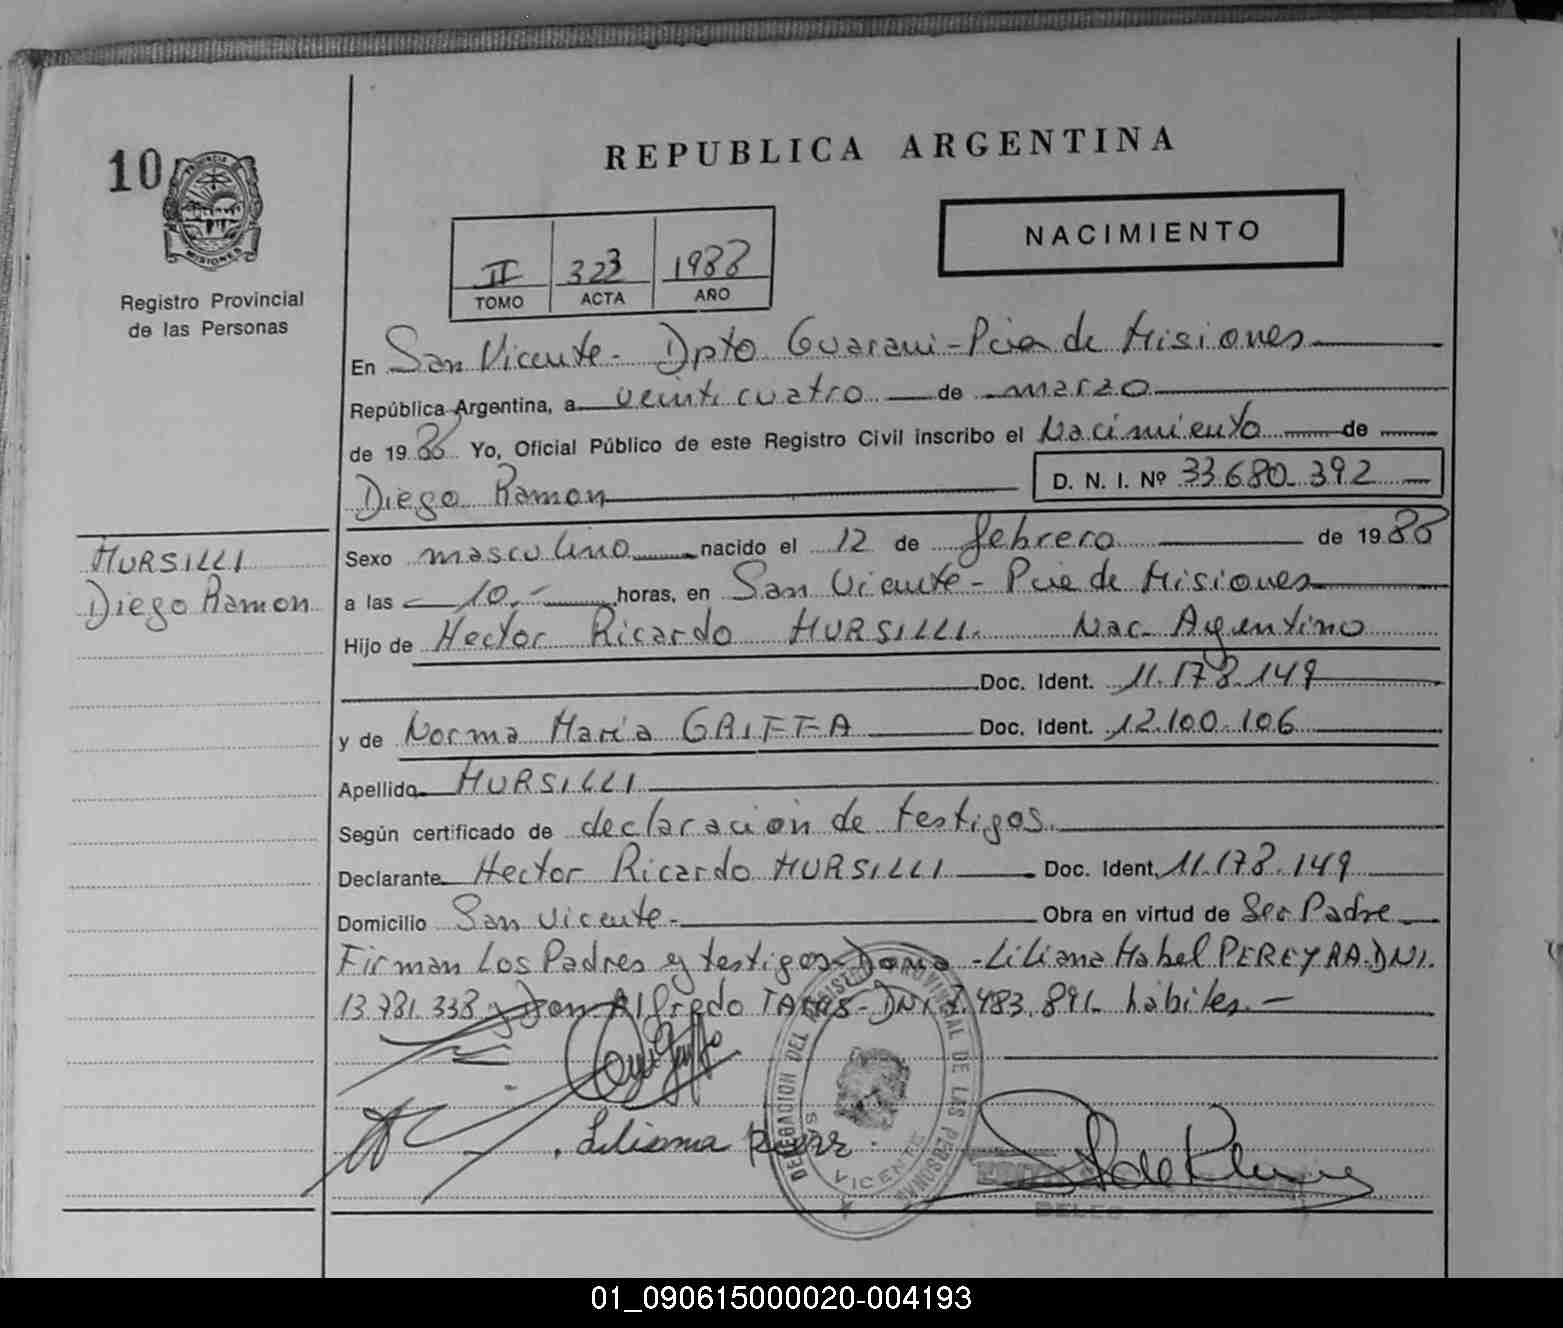 10
REPUBLICA ARGENTINA
PROVINCIA DE
MISIONES
Registro Provincial
de las Personas
NACIMIENTO
II 323 1988
TOMO ACTA AÑO
En San Vicente- Dpto Guarani-Pcia de Misiones
República Argentina, a veinticuatro de marzo
de 1988 Yo, Oficial Público de este Registro Civil inscribo el Nacimiento de
Diego Ramon D. N. I. Nº 33.680.392
MURSILLI
Diego Ramon
Sexo masculino nacido el 12 de febrero de 1988
a las 10.- horas, en San Vicente- Pcia de Misiones
Hijo de Hector Ricardo MURSILLI. Nac. Argentino
Doc. Ident. 11.178.149
y de Norma Maria GRIFFA Doc. Ident. 12.100.106
Apellido MURSILLI
Según certificado de declaracion de testigos.
Declarante Hector Ricardo MURSILLI Doc. Ident. 11.178.149
Domicilio San Vicente- Obra en virtud de Ser Padre
Firman Los Padres y testigos Dona -Liliana Mabel PEREYRA-DNI.
13.781.338 y Don Alfredo DNI 483.891. habiles.-
Liliana
DELEGACION DEL REGISTRO PROVINCIAL DE LAS PERSONAS
VICENTE
01_090615000020-004193